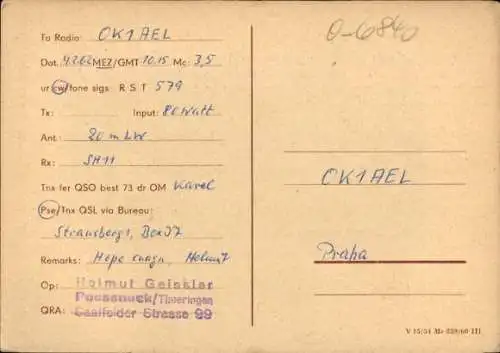 To Radio: OK1AEL
Dat. 4.2.62 MEZ/GMT 10.15 Mc: 3,5
ur cw/fone sigs R S T 579
Tx: Input: 80 Watt
Ant: 20 m LW
Rx: SH11
Tnx fer QSO best 73 dr OM Karel
Pse/Tnx QSL via Bureau:
Strausberg 1, Box 37
Remarks: Hope cuagn, Helmut
Op: Helmut Geissler
Poessneck/Thueringen
QRA: Saalfelder Strasse 29
0-6840
OK1AEL
Praha
V 15/54 Me 339/60 III